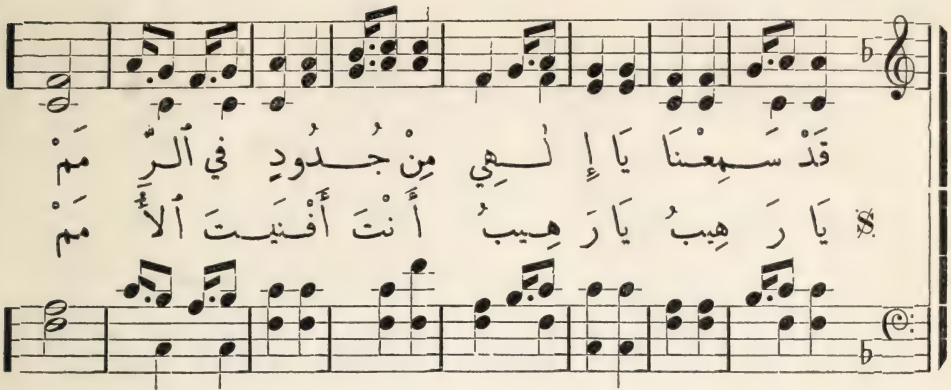 قَدْ سَـمِعْـنَا يَا إِ لٰـهِي مِنْ جُـدُودٍ فِي ٱلـرِّ مَمْ
يَا رَ هِيبُ يَا رَ هِـيبُ أَ نْتَ أَفْنَيْـتَ ٱلأُ مَمْ